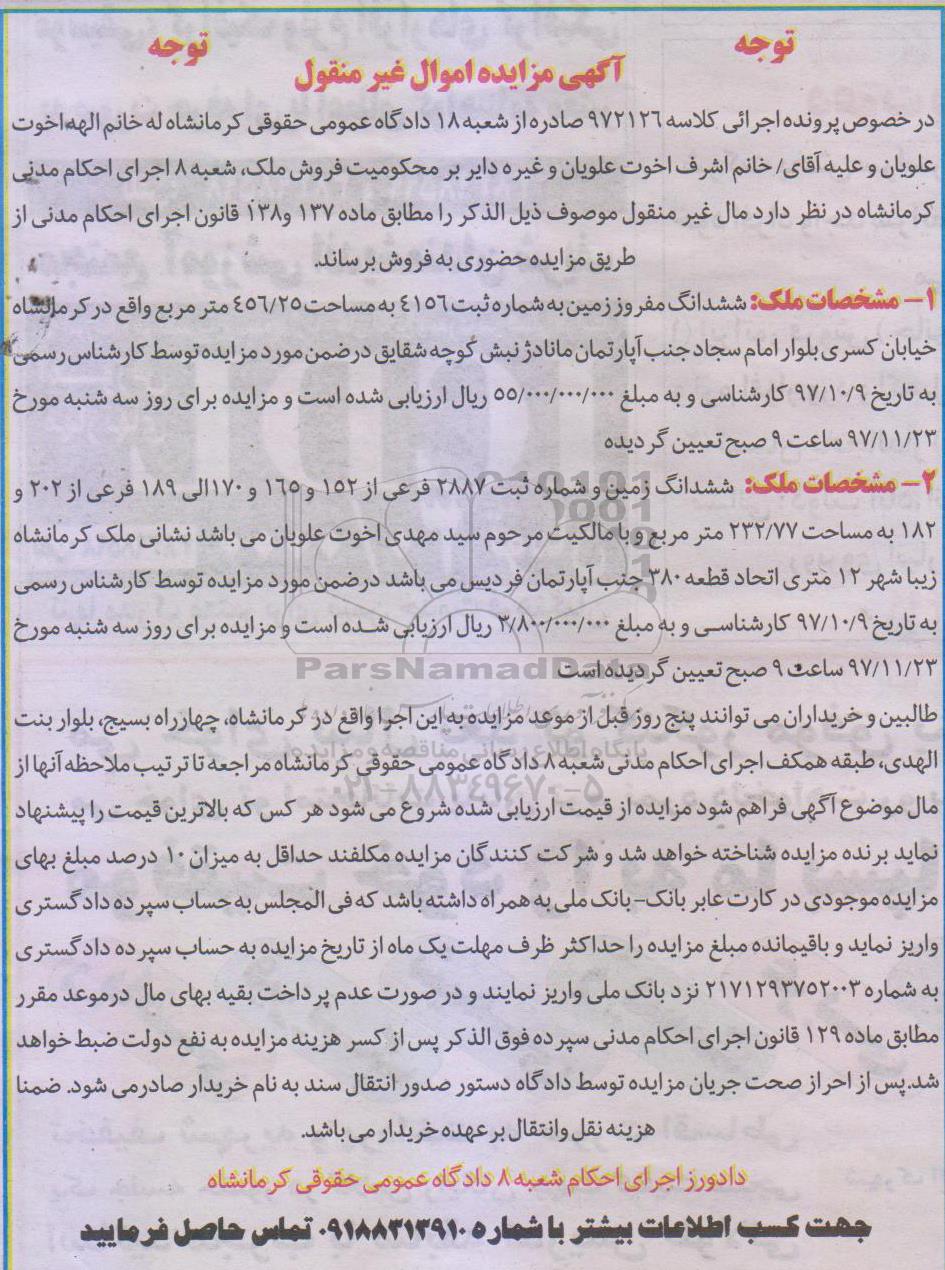 توجه
توجه
آگهی مزایده اموال غیر منقول
در خصوص پرونده اجرائی کلاسه ۹۷۲۱۲۶ صادره از شعبه ۱۸ دادگاه عمومی حقوقی کرمانشاه له خانم الهه اخوت
علویان و علیه آقای/ خانم اشرف اخوت علویان و غیره دایر بر محکومیت فروش ملک، شعبه ۸ اجرای احکام مدنی
کرمانشاه در نظر دارد مال غیر منقول موصوف ذیل الذکر را مطابق ماده ۱۳۷ و۱۳۸ قانون اجرای احکام مدنی از
طریق مزایده حضوری به فروش برساند.
۱- مشخصات ملک: ششدانگ مفروز زمین به شماره ثبت ۴۱۵۶ به مساحت ۴۵۶/۲۵ متر مربع واقع در کرمانشاه
خیابان کسری بلوار امام سجاد جنب آپارتمان ماناد‌ژ نبش کوچه شقایق درضمن مورد مزایده توسط کارشناس رسمی
به تاریخ ۹۷/۱۰/۹ کارشناسی و به مبلغ ۵۵/۰۰۰/۰۰۰/۰۰۰ ریال ارزیابی شده است و مزایده برای روز سه شنبه مورخ
۹۷/۱۱/۲۳ ساعت ۹ صبح تعیین گردیده
۲- مشخصات ملک: ششدانگ زمین و شماره ثبت ۲۸۸۷ فرعی از ۱۵۲ و ۱۶۵ و ۱۷۰الی ۱۸۹ فرعی از ۲۰۲ و
۱۸۲ به مساحت ۲۳۲/۷۷ متر مربع و با مالکیت مرحوم سید مهدی اخوت علویان می باشد نشانی ملک کرمانشاه
زیبا شهر ۱۲ متری اتحاد قطعه ۳۸۰ جنب آپارتمان فردیس می باشد درضمن مورد مزایده توسط کارشناس رسمی
به تاریخ ۹۷/۱۰/۹ کارشناسی و به مبلغ ۳/۸۰۰/۰۰۰/۰۰۰ ریال ارزیابی شده است و مزایده برای روز سه شنبه مورخ
۹۷/۱۱/۲۳ ساعت ۹ صبح تعیین گردیده است
ParsNamadData
طالبین و خریداران می توانند پنج روز قبل از موعد مزایده به این اجرا واقع در کرمانشاه، چهارراه بسیج، بلوار بنت
الهدی، طبقه همکف اجرای احکام مدنی شعبه ۸ دادگاه عمومی حقوقی کرمانشاه مراجعه تا ترتیب ملاحظه آنها از
پایگاه اطلاع رسانی مناقصه و مزایده
مال موضوع آگهی فراهم شود مزایده از قیمت ارزیابی شده شروع می شود هر کس که بالاترین قیمت را پیشنهاد
۰۲۱-۸۸۳۴۹۶۷۰-۵
نماید برنده مزایده شناخته خواهد شد و شرکت کنندگان مزایده مکلفند حداقل به میزان ۱۰ درصد مبلغ بهای
مزایده موجودی در کارت عابر بانک- بانک ملی به همراه داشته باشد که فی المجلس به حساب سپرده دادگستری
واریز نماید و باقیمانده مبلغ مزایده را حداکثر ظرف مهلت یک ماه از تاریخ مزایده به حساب سپرده دادگستری
به شماره ۲۱۷۱۲۹۳۷۵۲۰۰۳ نزد بانک ملی واریز نمایند و در صورت عدم پرداخت بقیه بهای مال درموعد مقرر
مطابق ماده ۱۲۹ قانون اجرای احکام مدنی سپرده فوق الذکر پس از کسر هزینه مزایده به نفع دولت ضبط خواهد
شد.پس از احراز صحت جریان مزایده توسط دادگاه دستور صدور انتقال سند به نام خریدار صادرمی شود. ضمنا
هزینه نقل وانتقال برعهده خریدار می باشد.
دادورز اجرای احکام شعبه ۸ دادگاه عمومی حقوقی کرمانشاه
جهت کسب اطلاعات بیشتر با شماره ۰۹۱۸۸۳۱۳۹۱۰ تماس حاصل فرمایید